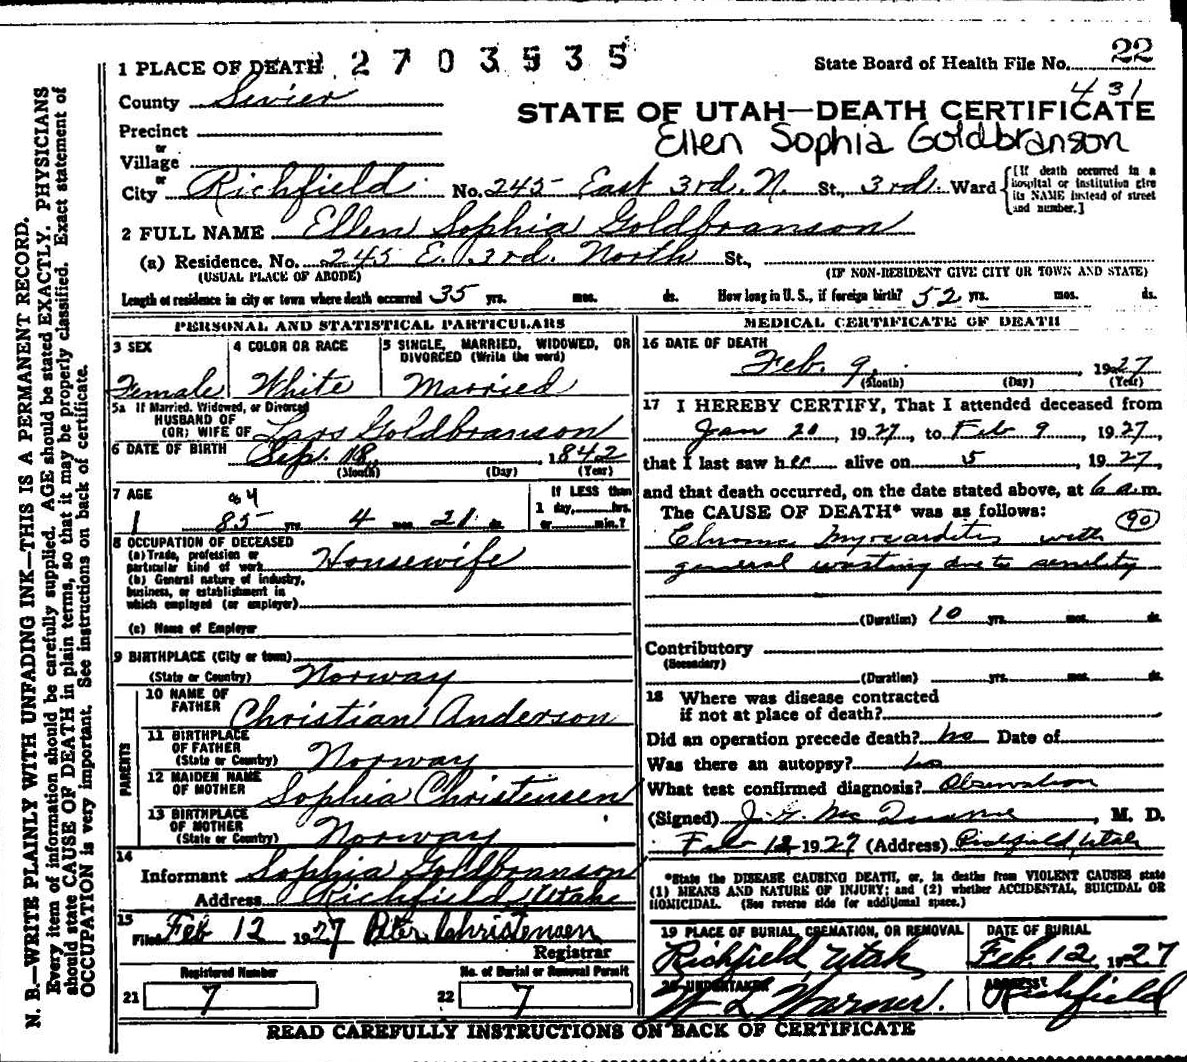 22
1 PLACE OF DEATH 2703535 State Board of Health File No.
431
County Sevier
STATE OF UTAH—DEATH CERTIFICATE
Precinct
Ellen Sophia Goldbranson
or
Village
or
City Richfield No. 245 East 3rd. N. St., 3rd. Ward [If death occurred in a hospital or institution give its NAME instead of street and number.]
2 FULL NAME Ellen Sophia Goldbranson
(a) Residence. No. 245 E. 3rd. North St.,
(USUAL PLACE OF ABODE) (IF NON-RESIDENT GIVE CITY OR TOWN AND STATE)
Length of residence in city or town where death occurred 35 yrs. mos. ds. How long in U. S., if foreign birth? 52 yrs. mos. ds.
PERSONAL AND STATISTICAL PARTICULARS
3 SEX
Female
4 COLOR OR RACE
White
5 SINGLE, MARRIED, WIDOWED, OR DIVORCED (Write the word)
Married
5a If Married, Widowed, or Divorced
HUSBAND OF
(OR) WIFE OF Lars Goldbranson
6 DATE OF BIRTH Sep. 18, 1842
(Month) (Day) (Year)
7 AGE
84
85 yrs. 4 mos. 21 ds.
If LESS than
1 day, hrs.
or min.?
8 OCCUPATION OF DECEASED
(a) Trade, profession or
particular kind of work Housewife
(b) General nature of industry,
business, or establishment in
which employed (or employer)
(c) Name of Employer
9 BIRTHPLACE (City or town)
(State or Country) Norway
PARENTS
10 NAME OF
FATHER Christian Anderson
11 BIRTHPLACE
OF FATHER
(State or Country) Norway
12 MAIDEN NAME
OF MOTHER Sophia Christensen
13 BIRTHPLACE
OF MOTHER
(State or Country) Norway
14
Informant Sophia Goldbranson
Address Richfield, Utah
15
Filed Feb 12 1927 Peter Christensen
Registrar
Registered Number No. of Burial or Removal Permit
21 7 22 7
MEDICAL CERTIFICATE OF DEATH
16 DATE OF DEATH
Feb. 9, 1927
(Month) (Day) (Year)
17 I HEREBY CERTIFY, That I attended deceased from
Jan 20, 1927, to Feb 9, 1927,
that I last saw her alive on 5, 1927,
and that death occurred, on the date stated above, at 6 a.m.
The CAUSE OF DEATH* was as follows: 90
Chronic Myocarditis with
general wasting due to senility
(Duration) 10 yrs. mos. ds.
Contributory
(Secondary)
(Duration) yrs. mos. ds.
18 Where was disease contracted
if not at place of death?
Did an operation precede death? No Date of
Was there an autopsy? No
What test confirmed diagnosis? Observation
(Signed) J. G. McQuarrie, M. D.
Feb 12 1927 (Address) Richfield, Utah
*State the DISEASE CAUSING DEATH, or, in deaths from VIOLENT CAUSES state
(1) MEANS AND NATURE OF INJURY; and (2) whether ACCIDENTAL, SUICIDAL OR
HOMICIDAL. (See reverse side for additional space.)
19 PLACE OF BURIAL, CREMATION, OR REMOVAL
Richfield Utah
DATE OF BURIAL
Feb. 12, 1927
20 UNDERTAKER
W L Warner.
ADDRESS
Richfield
READ CAREFULLY INSTRUCTIONS ON BACK OF CERTIFICATE
N. B.—WRITE PLAINLY WITH UNFADING INK—THIS IS A PERMANENT RECORD.
Every item of information should be carefully supplied. AGE should be stated EXACTLY. PHYSICIANS
should state CAUSE OF DEATH in plain terms, so that it may be properly classified. Exact statement of
OCCUPATION is very important. See instructions on back of certificate.